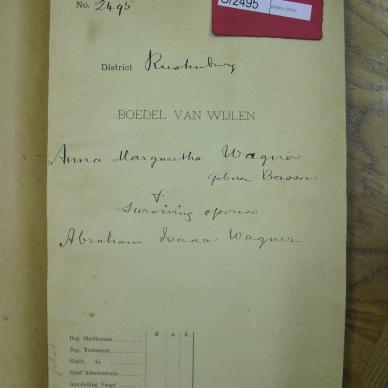 No. 2495
0/2495
District Rustenburg
BOEDEL VAN WIJLEN
Anna Margaretha Wagner
geboren Basson
&
Surviving spouse
Abraham Isaac Wagner
£ s. d.
Reg. Sterfkennis
Reg. Testament
Copie do.
Brief Administratie
Aanstelling Voogd